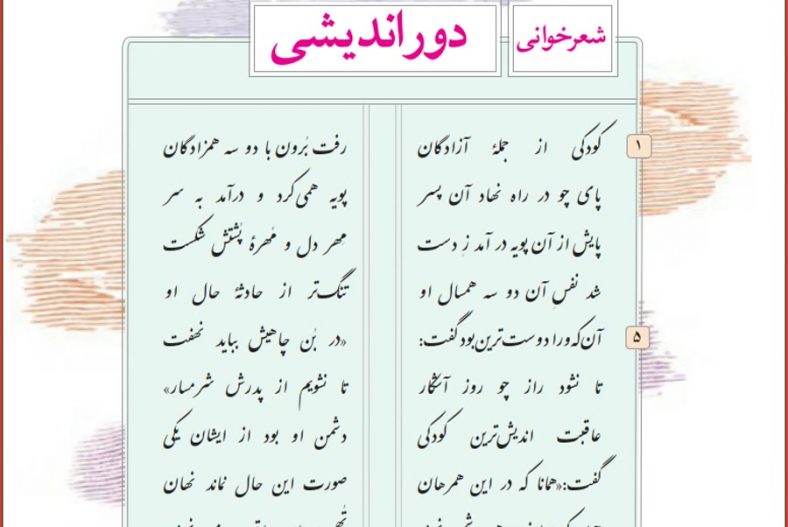 شعرخوانی
دوراندیشی
۱
کودکی از جملهٔ آزادگان رفت بُرون با دو سه همزادگان
پای چو در راه نهاد آن پسر پویه همی‌کرد و درآمد به سر
پایش از آن پویه درآمد زِ دست مِهر دل و مُهرهٔ پُشتش شکست
شد نفسِ آن دو سه همسال او تنگ‌تر از حادثهٔ حال او
۵
آن‌که ورا دوست‌ترین بود گفت: «در بُن چاهیش بباید نهفت
تا نشود راز چو روز آشکار تا نشویم از پدرش شرمسار»
عاقبت اندیش‌ترین کودکی دشمن او بود از ایشان یکی
گفت: «همانا که در این همرهان صورت این حال نماند نهان